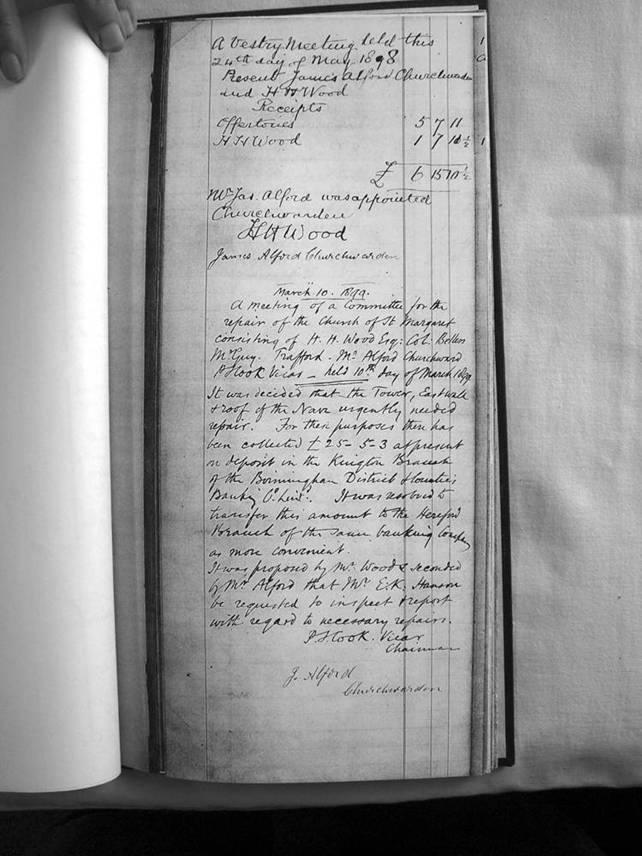 A Vestry Meeting held this
24th day of May 1898
Present James Alford Churchwarden
and H H Wood
Receipts
Offertories 5 7 11
H H Wood 1 7 10½
£ 6 15 10½
Mr Jas. Alford was appointed
Churchwarden
H H Wood
James Alford Churchwarden
March 10. 1899.
A meeting of a Committee for the
repair of the Church of St Margaret
consisting of H. H. Wood Esq: Col:
Mr Guy. Trafford. Mr Alford Churchward
Cook Vicar – held 10th day of March 1899
It was decided that the Tower, East wall
& roof of the Nave urgently needed
repair. For these purposes there has
been collected £ 25 – 5 – 3 at present
on deposit in the Kington Branch
of the Birmingham District & Counties
Banking Co Limd. It was resolved to
transfer this amount to the Hereford
Branch of the same banking Company
as more convenient.
It was proposed by Mr Wood & seconded
by Mr Alford that Mr E.K.
be requested to inspect & report
with regard to necessary repairs.
Cook. Vicar
Chairman
J. Alford
Churchwarden